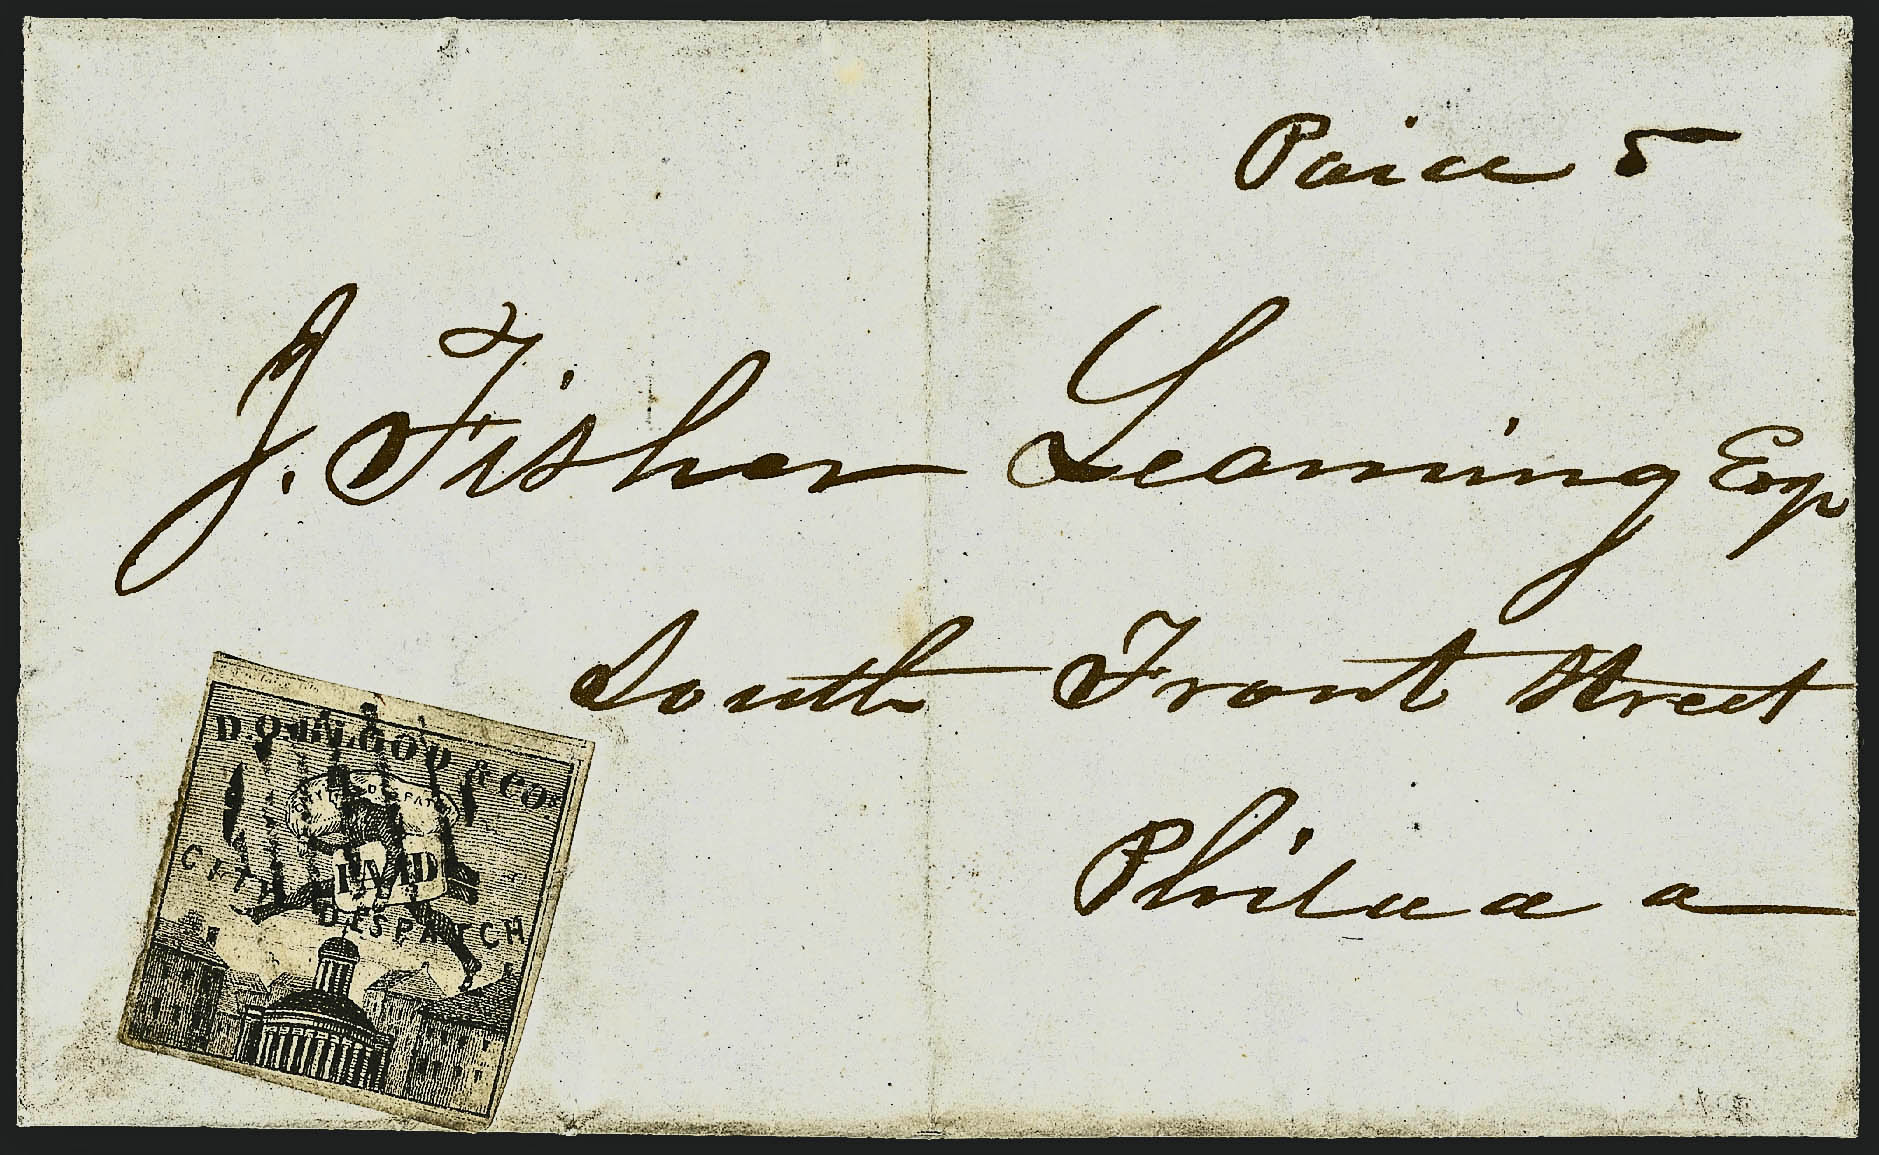 Paid 5
J. Fisher Leaming Esq
South Front Street
Philada
D.O. BLOOD & Co's
CITY DESPATCH
PAID
CITY DESPATCH